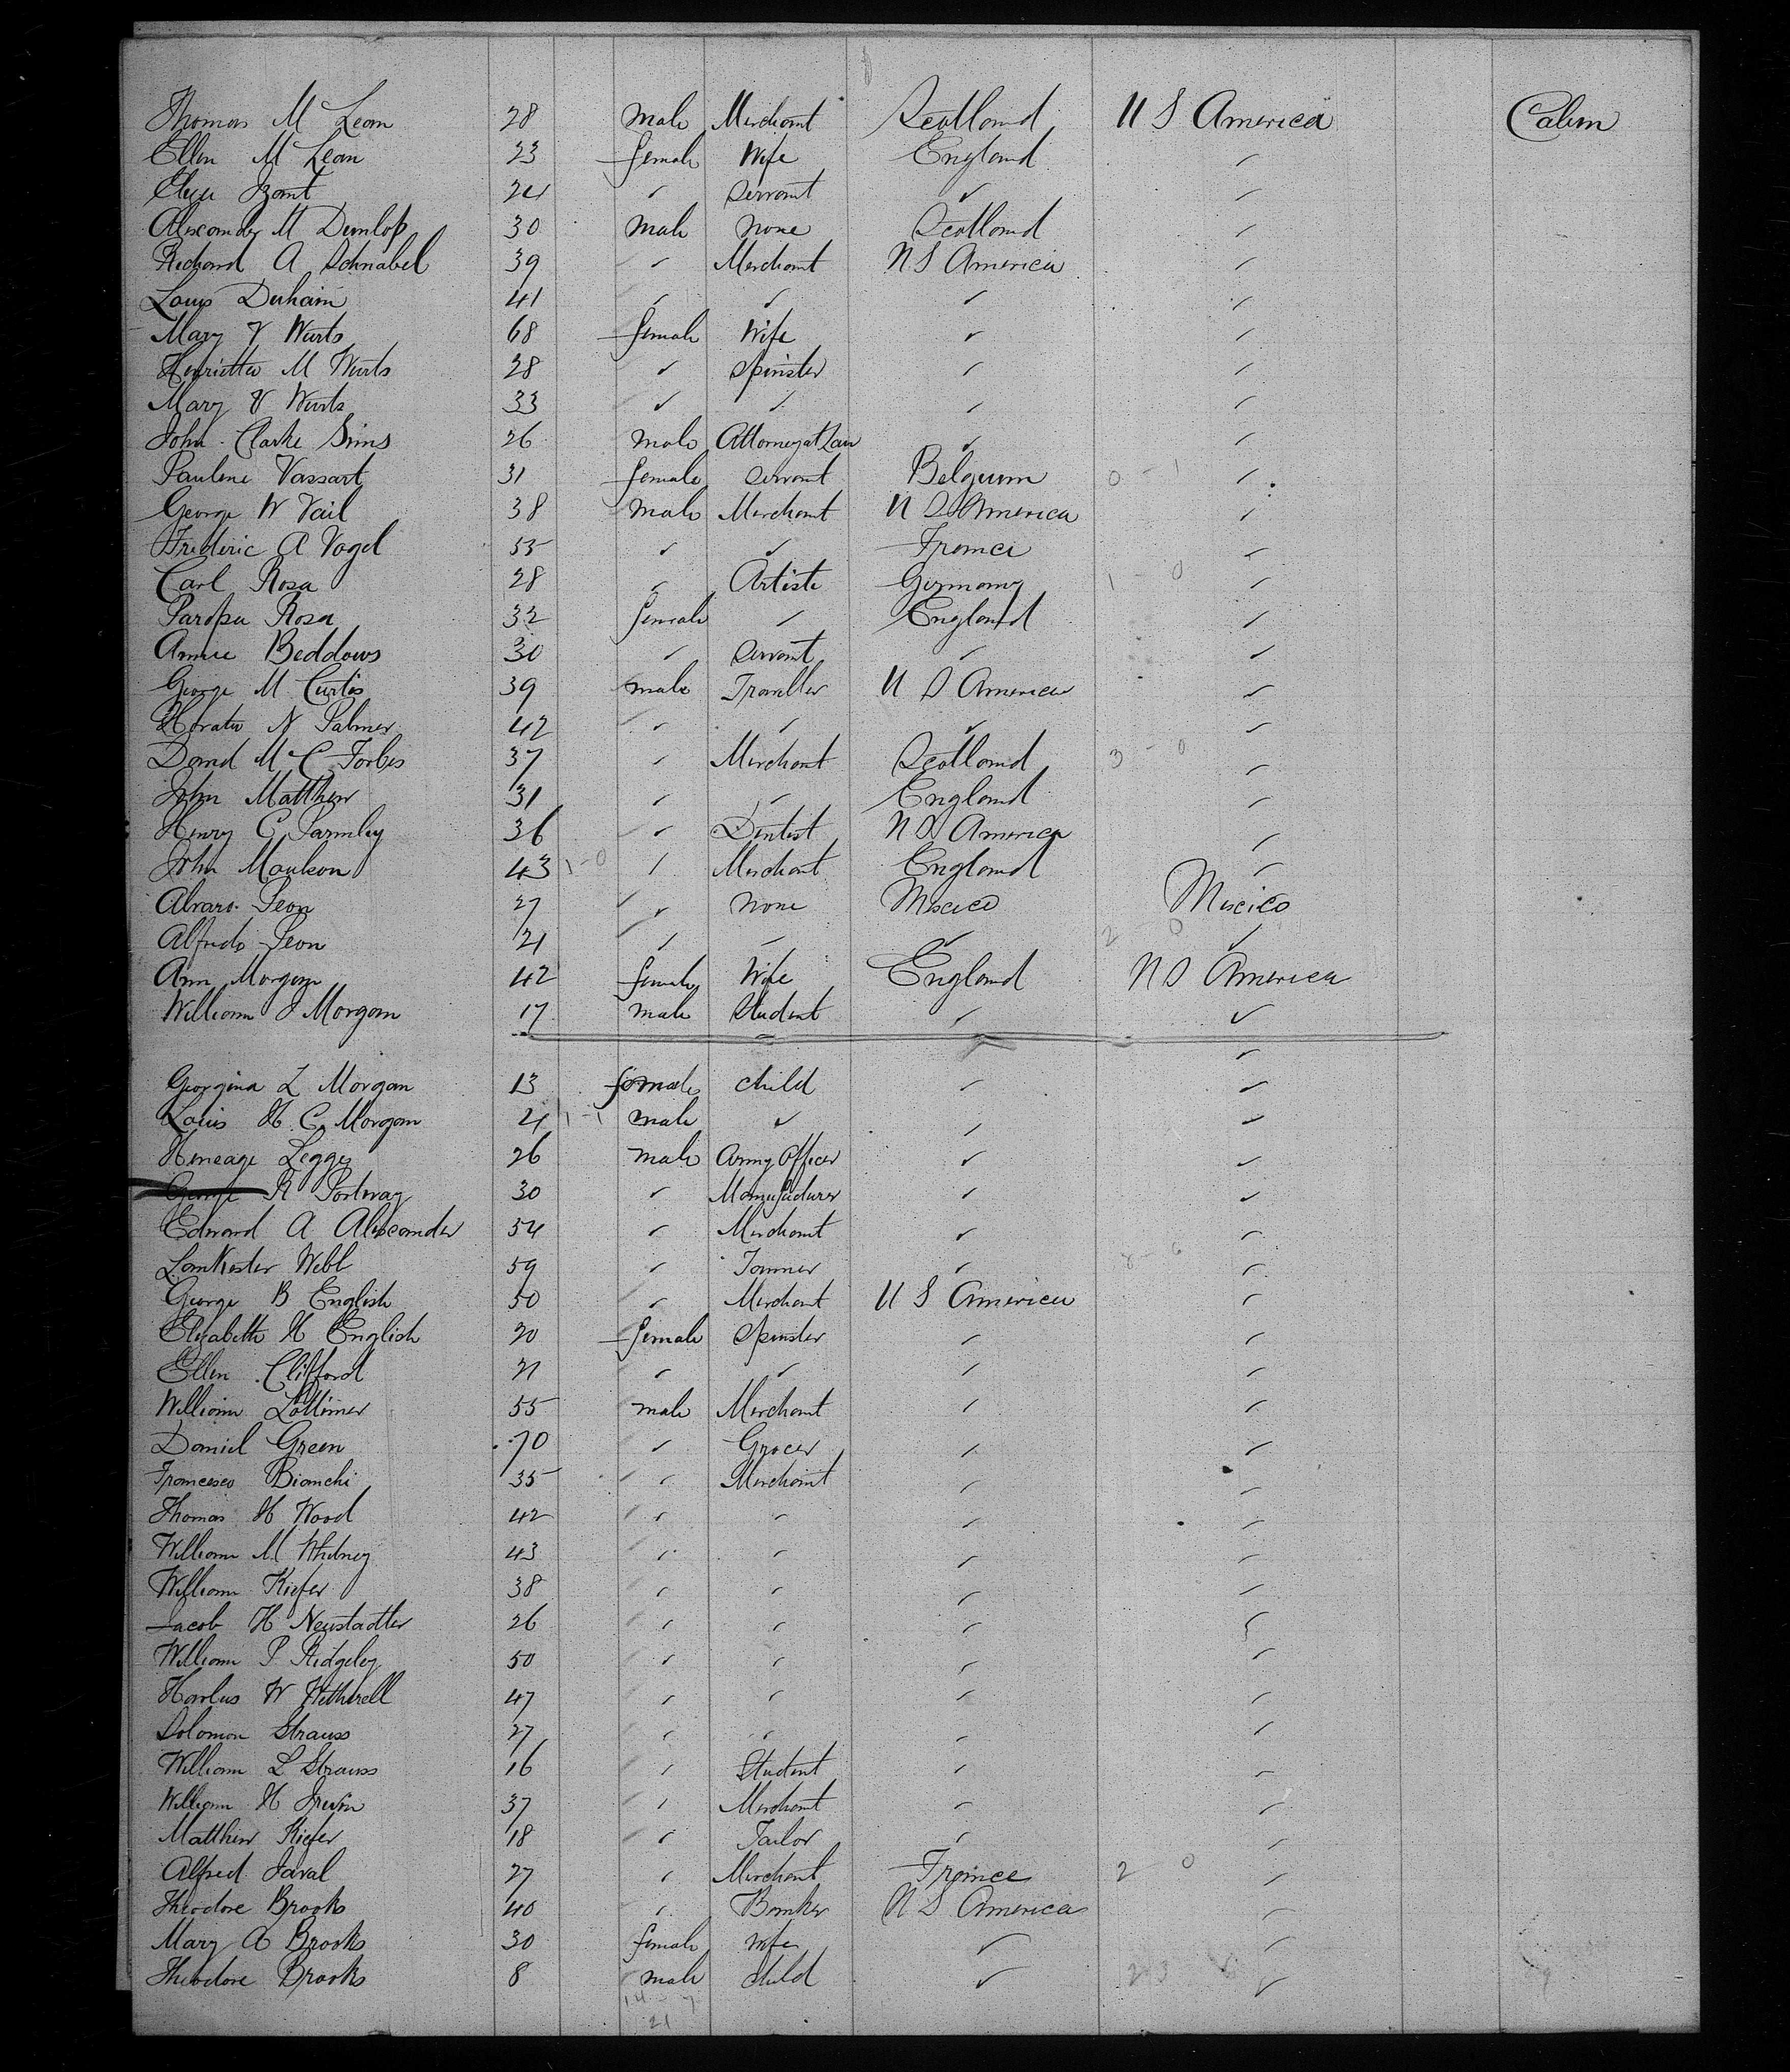 Thomas M Lean 28 male Merchant Scotland U S America Cabin
Ellen M Lean 23 female Wife England ✓
Izant 24 ✓ Servant ✓ ✓
Alexander M Dunlop 30 male none Scotland ✓
Richard A Schnabel 39 ✓ Merchant U S America ✓
Louis Duhain 41 ✓ ✓ ✓ ✓
Mary V Wurts 68 female Wife ✓ ✓
Henrietta M Wurts 28 ✓ Spinster ✓ ✓
Mary V Wurts 33 ✓ ✓ ✓ ✓
John Clarke Sims 26 male Attorney at Law ✓ ✓
Pauline Vassart 31 female Servant Belgium 0 - 1 ✓
George W Vail 38 male Merchant U S America ✓
Frederic A Vogel 55 ✓ ✓ France ✓
Carl Rosa 28 ✓ Artiste Germany 1 - 0 ✓
Paropa Rosa 32 female ✓ England ✓
Annie Beddows 30 ✓ Servant ✓ ✓
George M Curtis 39 male Traveller U S America ✓
Horatio N Palmer 42 ✓ ✓ ✓ ✓
David M C Forbes 37 ✓ Merchant Scotland 3 - 0 ✓
John Matthew 31 ✓ ✓ England ✓
Henry C Parmley 36 ✓ Dentist U S America ✓
John Moulson 43 1 - 0 ✓ Merchant England ✓
Alvaro Peon 27 ✓ none Mexico Mexico
Alfredo Peon 21 ✓ ✓ ✓ 2 - 0 ✓
Ann Morgan 42 female Wife England U S America
William J Morgan 17 male Student ✓ ✓
Georgina L Morgan 13 female child ✓ ✓
Louis H C Morgan 4 1 - 1 male ✓ ✓ ✓
Heneage Legge 26 male Army Officer ✓ ✓
George R Portway 30 ✓ Manufacturer ✓ ✓
Edward A Alexander 54 ✓ Merchant ✓ ✓
Lankester Webb 59 ✓ Tanner ✓ 8 - 6 ✓
George B English 50 ✓ Merchant U S America ✓
Elizabeth H English 20 female Spinster ✓ ✓
Ellen Clifford 21 ✓ ✓ ✓ ✓
William Lottimer 55 male Merchant ✓ ✓
Daniel Green 70 ✓ Grocer ✓ ✓
Francesco Bianchi 35 ✓ Merchant ✓ ✓
Thomas H Wood 42 ✓ ✓ ✓ ✓
William M Whitney 43 ✓ ✓ ✓ ✓
William Kiefer 38 ✓ ✓ ✓ ✓
Jacob H Neustadter 26 ✓ ✓ ✓ ✓
William P Ridgeley 50 ✓ ✓ ✓ ✓
W Witherell 47 ✓ ✓ ✓ ✓
Solomon Strauss 27 ✓ ✓ ✓ ✓
William L Strauss 16 ✓ Student ✓ ✓
William H Irwin 37 ✓ Merchant ✓ ✓
Matthew Kiefer 18 ✓ Tailor ✓ ✓
Alfred Javal 27 ✓ Merchant France 2 0 ✓
Theodore Brooks 40 ✓ Banker U S America ✓
Mary A Brooks 30 female wife ✓ ✓
Theodore Brooks 8 male child ✓ 23 ✓
14 - 7
21